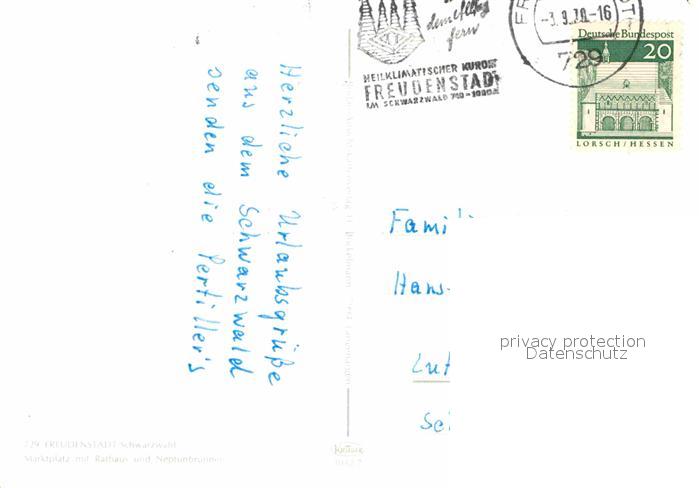 Herzliche Urlaubsgrüße
aus dem Schwarzwald
senden die Pertiller's
fern
HEILKLIMATISCHER KURORT
FREUDENSTADT
IM SCHWARZWALD 740-1000 m
-3.9.70.-16
729
Deutsche Bundespost
20
LORSCH/HESSEN
Fami
Hans-
Lut
Sei
privacy protection
Datenschutz
729 FREUDENSTADT Schwarzwald
Marktplatz mit Rathaus und Neptunbrunnen
KRÜGER